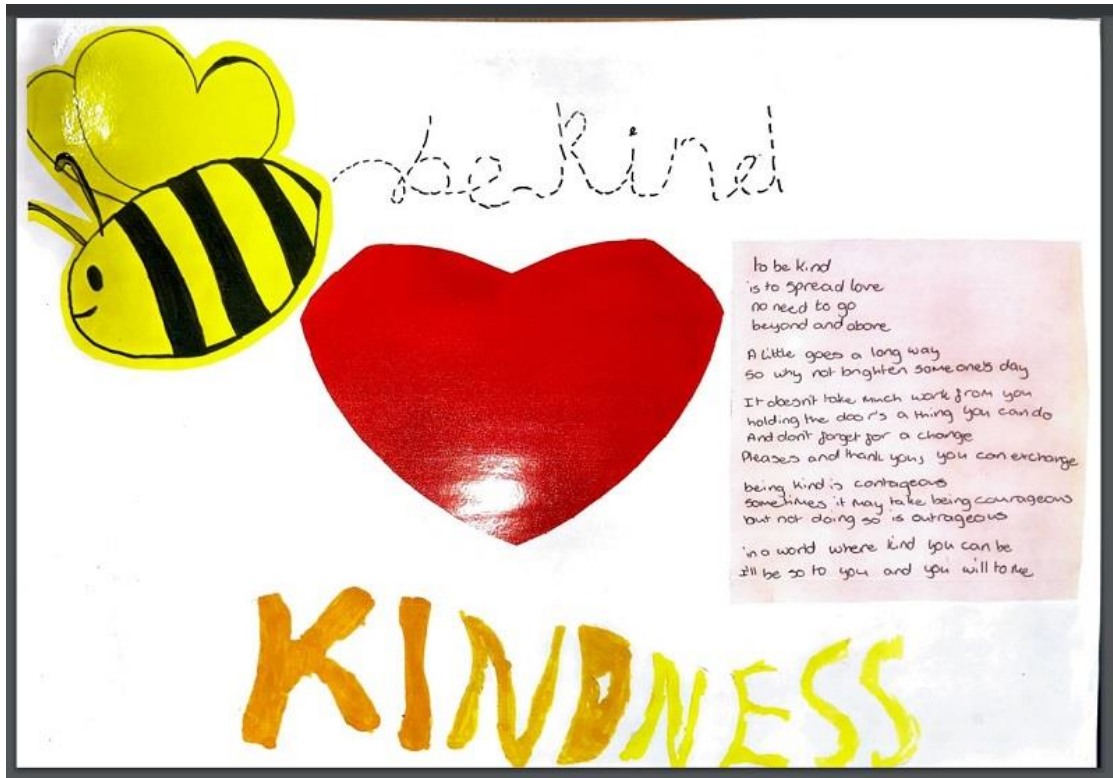 be kind
to be kind
is to spread love
no need to go
beyond and above
A little goes a long way
so why not brighten someone's day
It doesn't take much work from you
holding the door's a thing you can do
And don't forget for a change
Pleases and thank you, you can exchange
being kind is contageous
sometimes it may take being courageous
but not doing so is outrageous
in a world where kind you can be
I'll be so to you and you will to me
KINDNESS